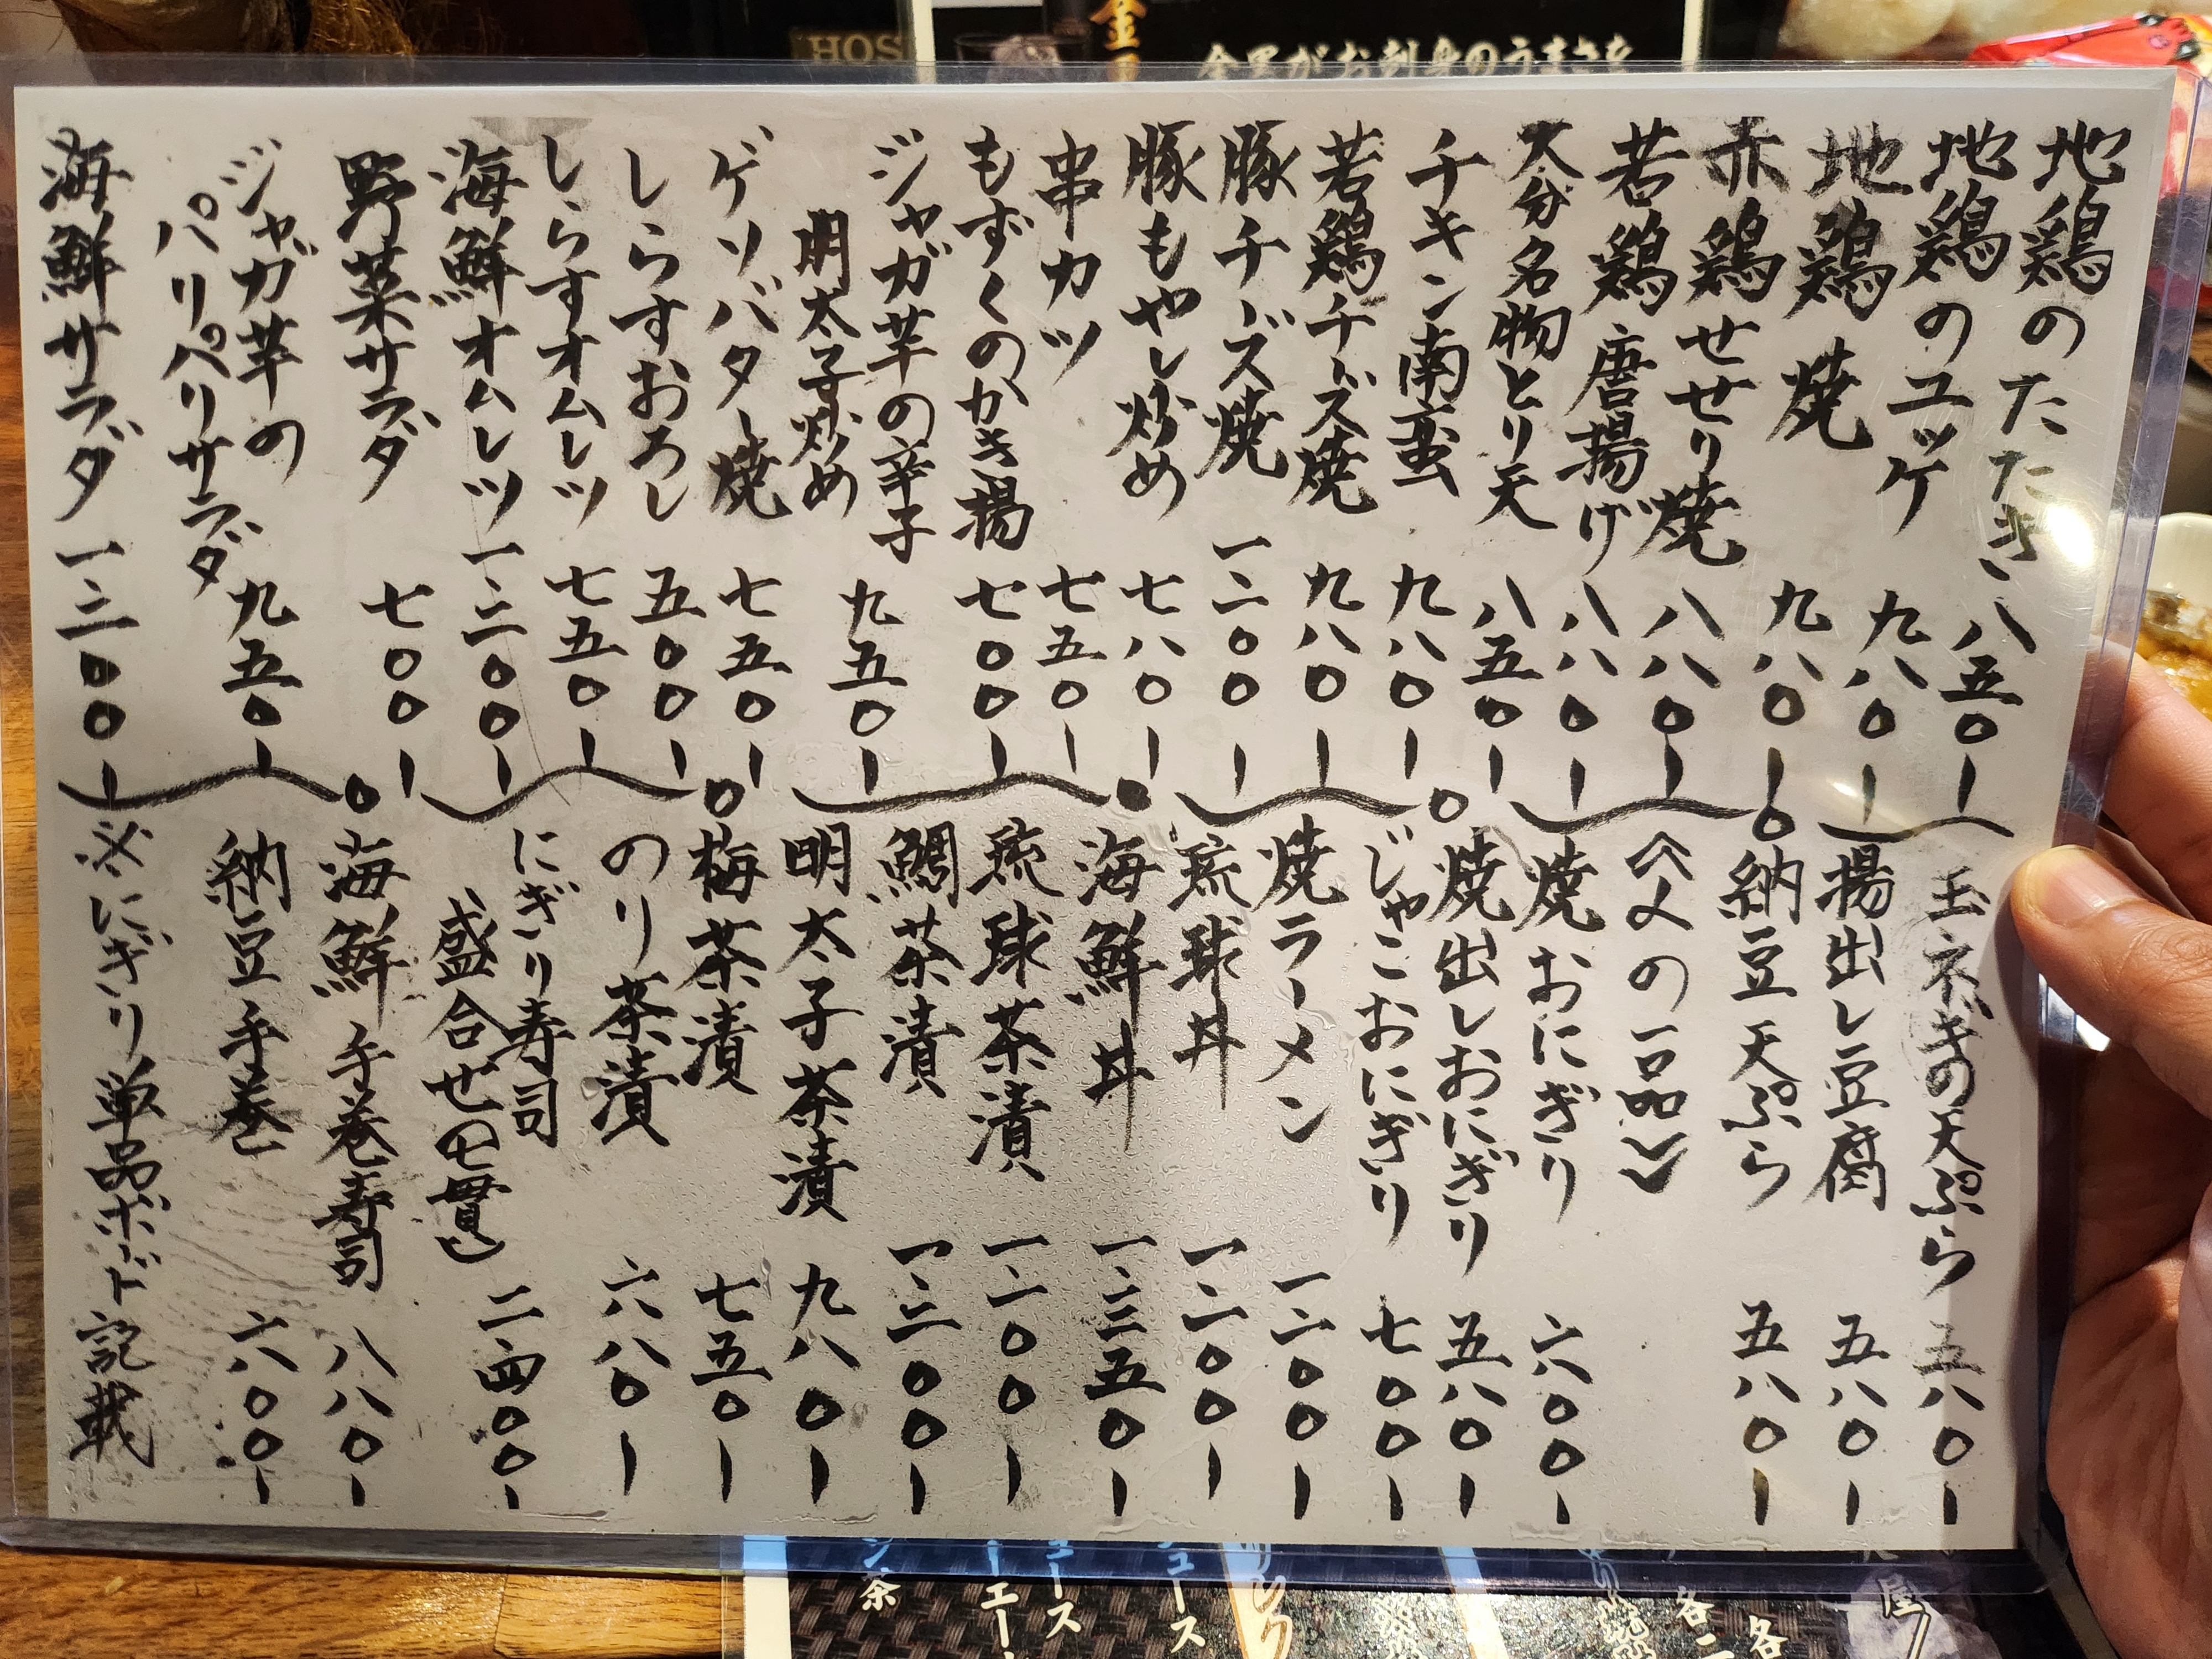 地鶏のたたき 八五〇ー
地鶏のユッケ 九八〇ー
地鶏焼 九八〇ー
赤鶏せせり焼 八八〇ー
若鶏唐揚げ 八八〇ー
大分名物とり天 八五〇ー
チキン南蛮 九八〇ー
若鶏チーズ焼 九八〇ー
豚チーズ焼 一、二〇〇ー
豚もやし炒め 七八〇ー
串カツ 七五〇ー
もずくのかき揚 七〇〇ー
ジャガ芋の辛子
明太子炒め 九五〇ー
ゲソバター焼 七五〇ー
しらすおろし 五〇〇ー
しらすオムレツ 七五〇ー
海鮮オムレツ 一、二〇〇ー
野菜サラダ 七〇〇ー
ジャガ芋の
パリパリサラダ 九五〇ー
海鮮サラダ 一、二〇〇ー
玉ネギの天ぷら 五八〇ー
揚出し豆腐 五八〇ー
納豆天ぷら 五八〇ー
《〆の一品》
焼おにぎり 六〇〇ー
焼出しおにぎり 五八〇ー
じゃこおにぎり 七〇〇ー
焼ラーメン 一、二〇〇ー
琉球丼 一、二〇〇ー
海鮮丼 一、三五〇ー
琉球茶漬 一、二〇〇ー
鯛茶漬 一、二〇〇ー
明太子茶漬 九八〇ー
梅茶漬 七五〇ー
のり茶漬 六八〇ー
にぎり寿司
盛合せ(七貫) 二、四〇〇ー
海鮮手巻寿司 八八〇ー
納豆手巻 六〇〇ー
※にぎり単品ボード記載
HOS